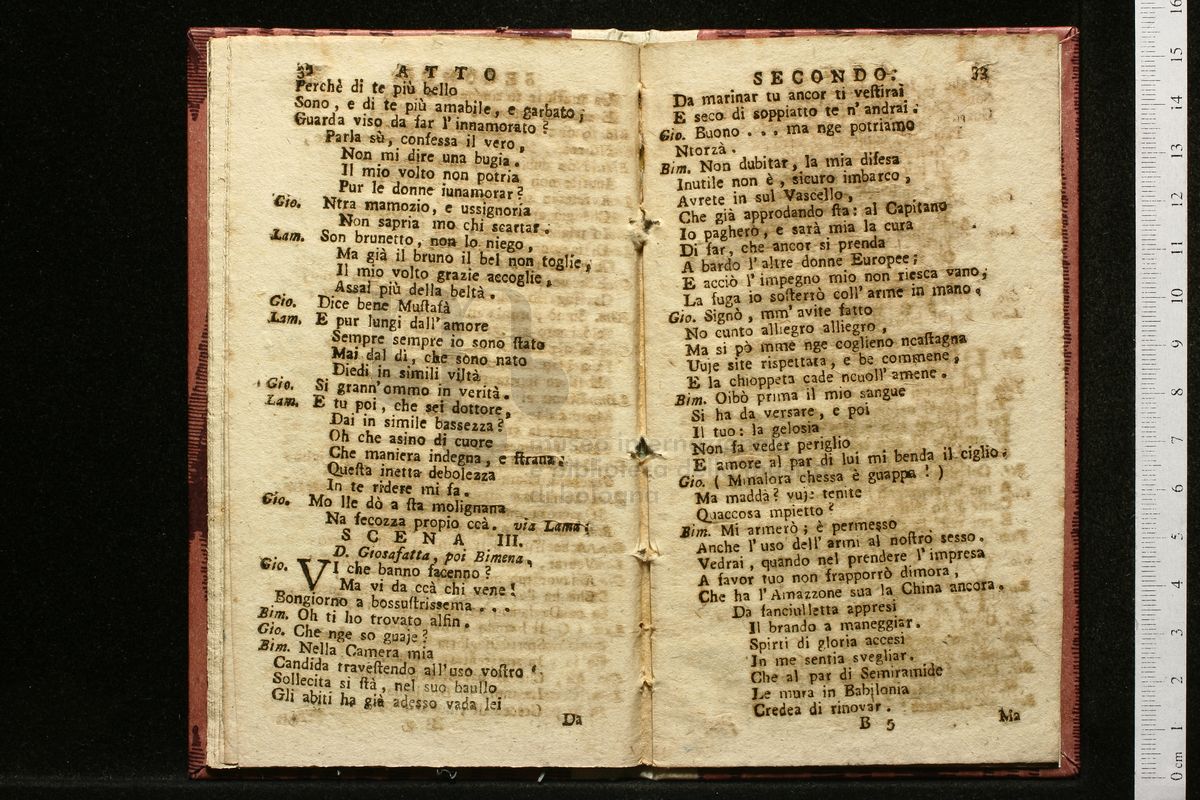 32 ATTO
Perchè di te più bello
Sono, e di te più amabile, e garbato;
Guarda viso da far l'innamorato?
Parla sù, confessa il vero,
Non mi dire una bugia.
Il mio volto non potria
Pur le donne iunamorar?
Gio. Ntra mamozio, e ussignoria
Non sapria mo chi scartar.
Lam. Son brunetto, non lo niego,
Ma già il bruno il bel non toglie,
Il mio volto grazie accoglie,
Assai più della beltà.
Gio. Dice bene Muſtafà
Lam. E pur lungi dall'amore
Sempre sempre io sono ſtato
Mai dal dì, che sono nato
Diedi in simili viltà
Gio. Si grann'ommo in verità.
Lam. E tu poi, che sei dottore,
Dai in simile bassezza?
Oh che asino di cuore
Che maniera indegna, e ſtrana:
Queſta inetta debolezza
In te ridere mi fa.
Gio. Mo lle dò a ſta molignana
Na fecozza propio ccà. via Lama;
SCENA III.
D. Giosafatta, poi Bimena,
Gio. VI che banno facenno?
Ma vi da ccà chi vene!
Bongiorno a bossuſtrissema...
Bim. Oh ti ho trovato alfin.
Gio. Che nge so guaje?
Bim. Nella Camera mia
Candida traveſtendo all'uso voſtro
Sollecita si ſtà, nel suo baullo
Gli abiti ha già adesso vada lei
Da
SECONDO. 33
Da marinar tu ancor ti veſtirai
E seco di soppiatto te n'andrai.
Gio. Buono... ma nge potriamo
Ntorzà.
Bim. Non dubitar, la mia difesa
Inutile non è, sicuro imbarco,
Avrete in sul Vascello,
Che già approdando ſta: al Capitano
Io pagherò, e sarà mia la cura
Di far, che ancor si prenda
A bardo l'altre donne Europee;
E acciò l'impegno mio non riesca vano,
La fuga io soſterrò coll'arme in mano.
Gio. Signò, mm'avite fatto
No cunto alliegro alliegro,
Ma si pò mme nge coglieno ncaſtagna
Uuje site rispettata, e be commene,
E la chioppeta cade ncuoll'amene.
Bim. Oibò prima il mio sangue
Si ha da versare, e poi
Il tuo: la gelosia
Non fa veder periglio
E amore al par di lui mi benda il ciglio.
Gio. (Minalora chessa è guappa!)
Ma maddà? vuje tenite
Quaccosa mpietto?
Bim. Mi armerò; è permesso
Anche l'uso dell'armi al noſtro sesso.
Vedrai, quando nel prendere l'impresa
A favor tuo non frapporrò dimora,
Che ha l'Amazzone sua la China ancora.
Da fanciulletta appresi
Il brando a maneggiar.
Spirti di gloria accesi
In me sentia svegliar.
Che al par di Semiramide
Le mura in Babilonia
Credea di rinovar.
B 5 Ma